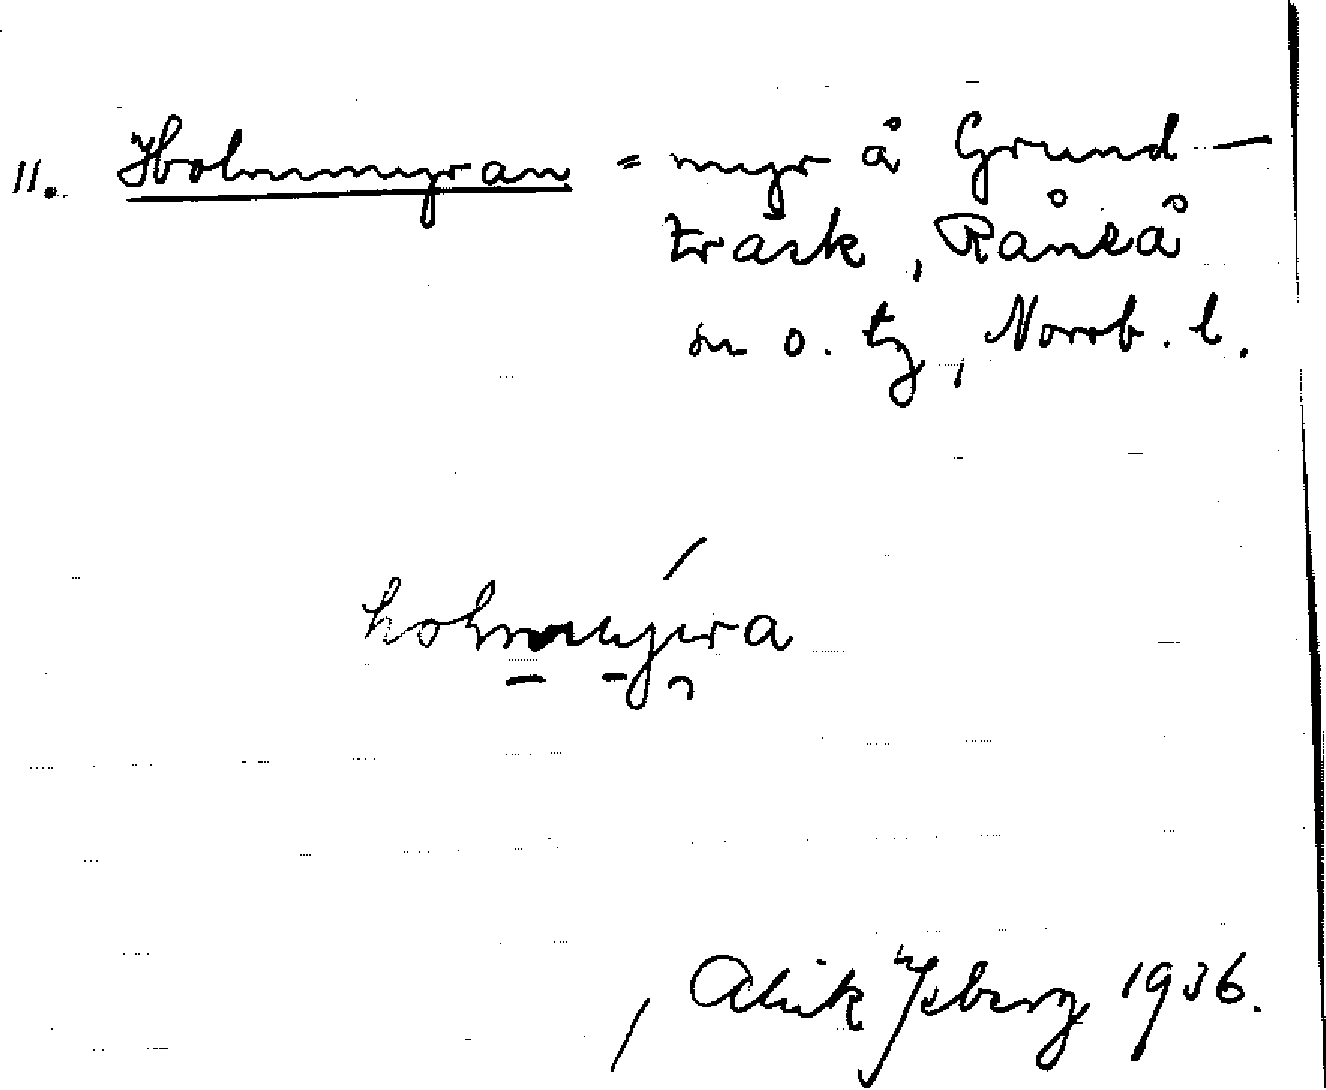 11. Holmmyran = myr å Grund-
träsk, Råneå
sn o. tg, Norrb. l.
holmmyra
Alrik Ysberg 1936.